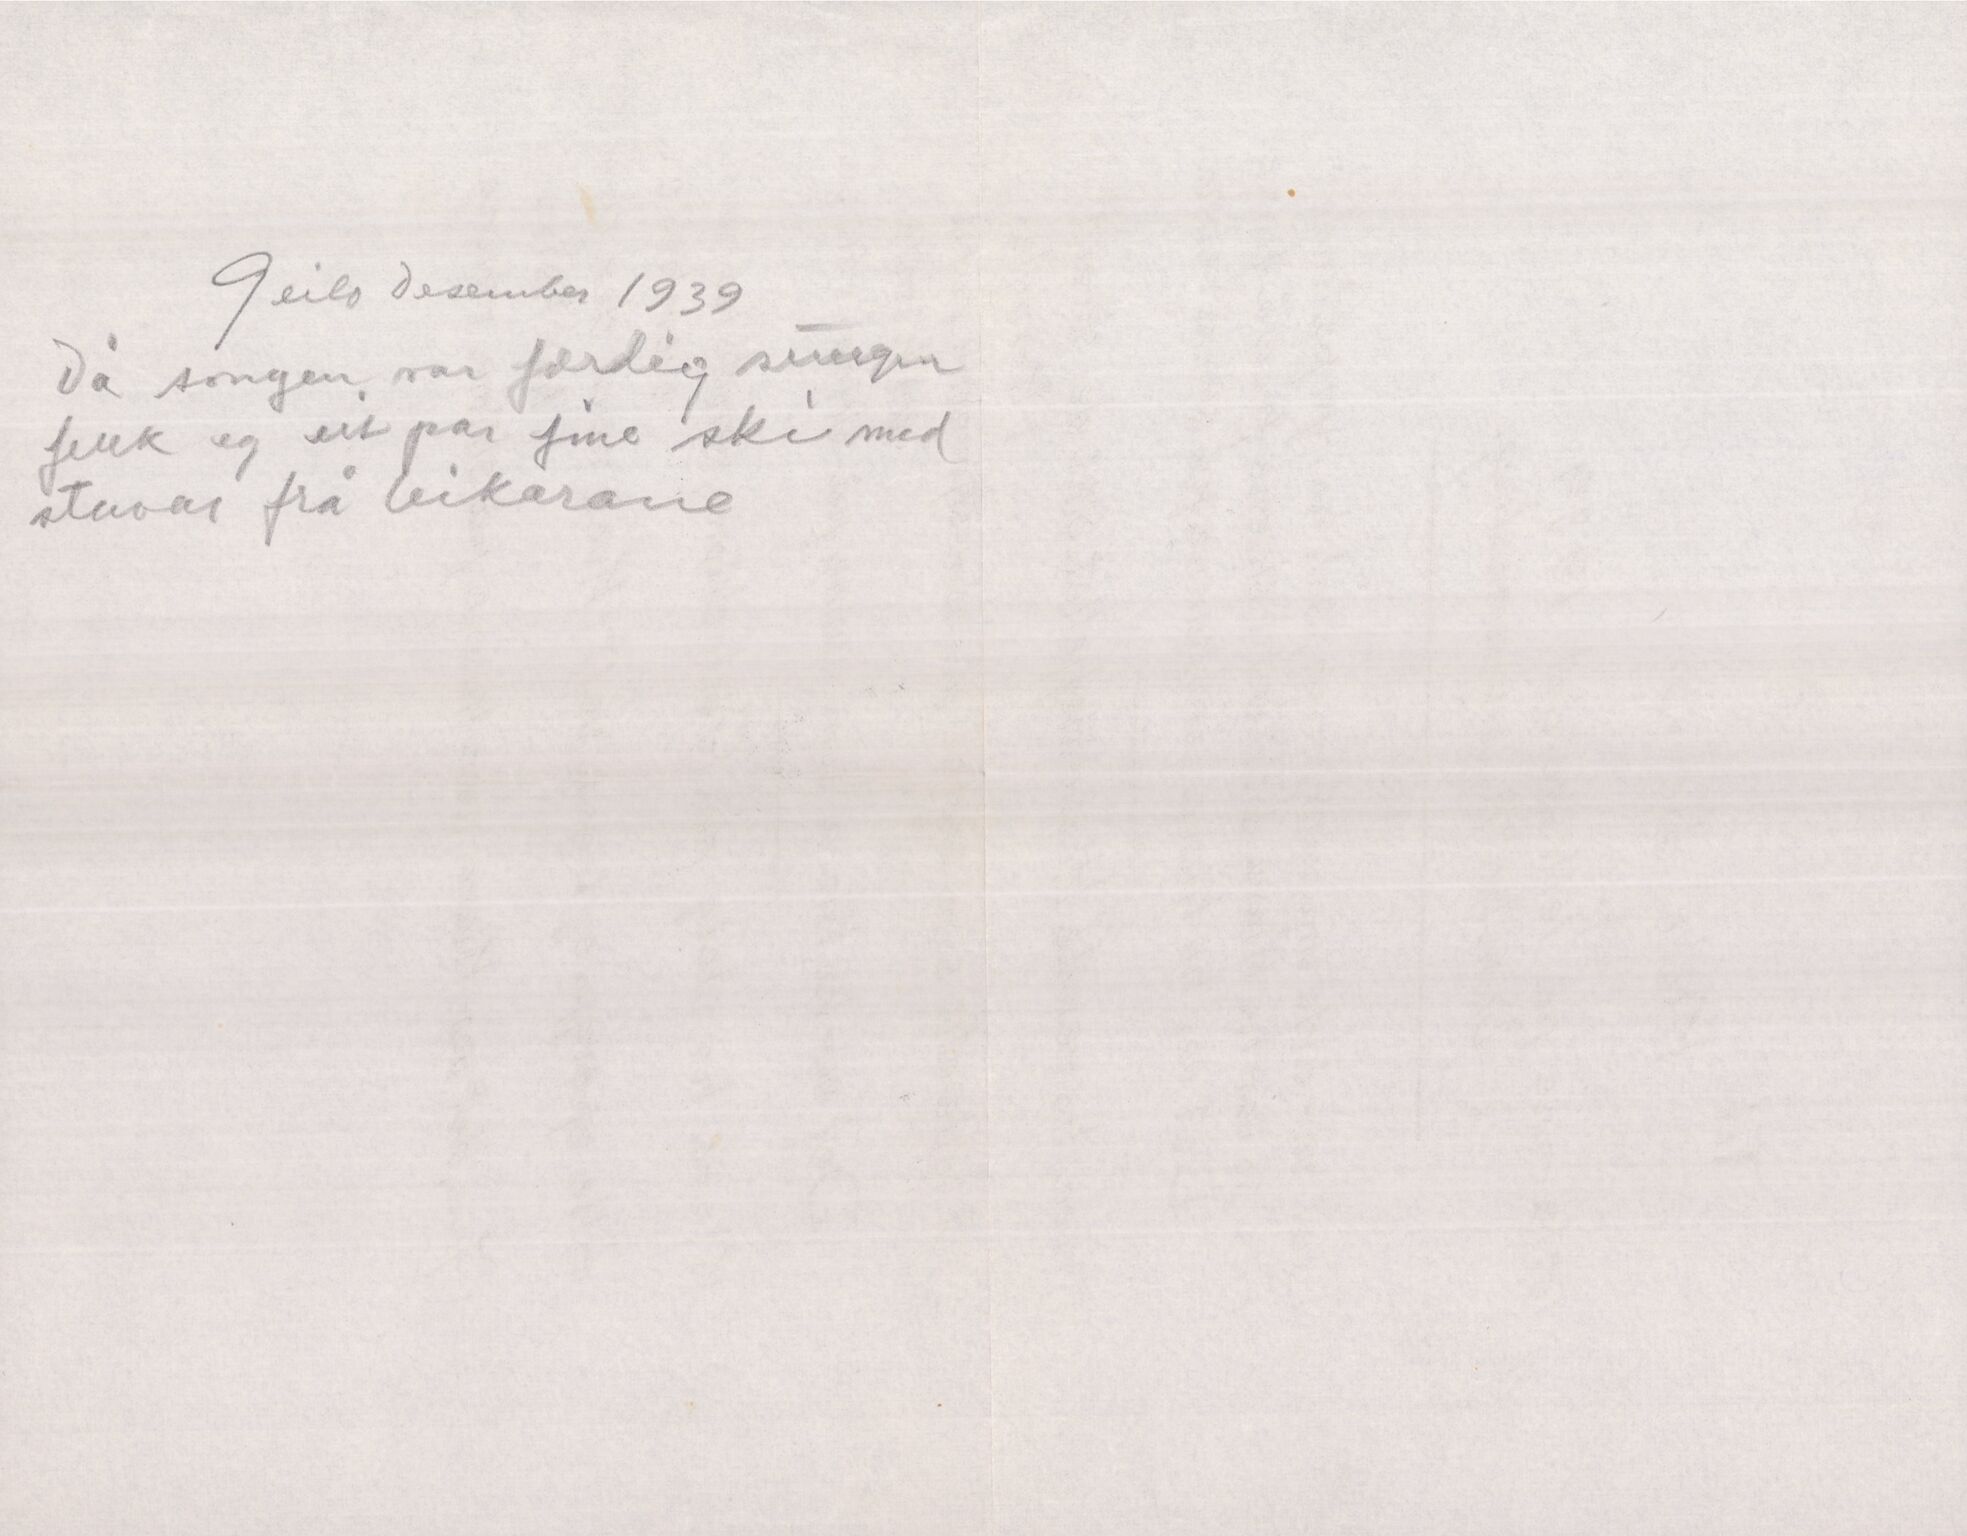 Geilo Desember 1939
Då songen var færdig sungen
fekk eg eit par fine ski med
stavar frå leikarane